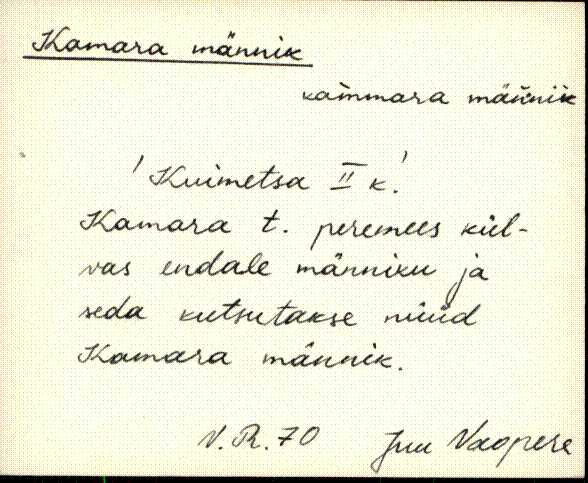 Kamara männik
kammara männik
'Kuimetsa II k.'
Kamara t. peremees kül-
vas endale männiku ja
seda kutsutakse nüüd
Kamara männik.
V. R. 70 Juu Vaopere